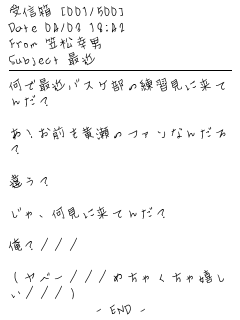 受信箱 [001/500]
Date 04/03 18:42
From 笠松幸男
Subject 最近
何で最近バスケ部の練習見に来て
んだ?
あ!お前も黄瀬のファンなんだろ
?
違う?
じゃ、何見に来てんだ?
俺?///
(ヤベー///めちゃくちゃ嬉し
い///)
- END -